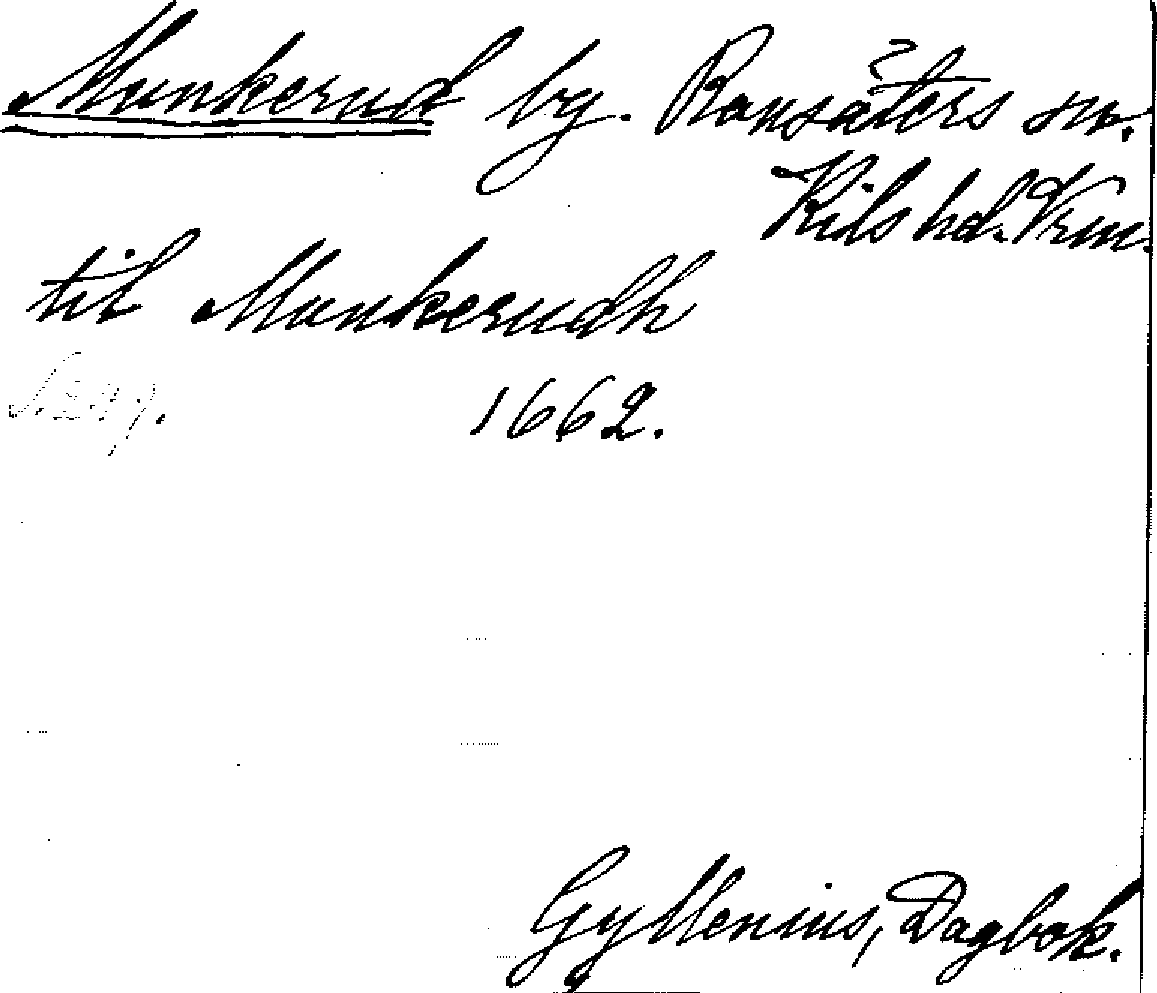 Munkerud by. Ransäters sn.
Kils hd. Vrm.
til Munkerudh
S. 297. 1662.
Gyllenius, Dagbok.